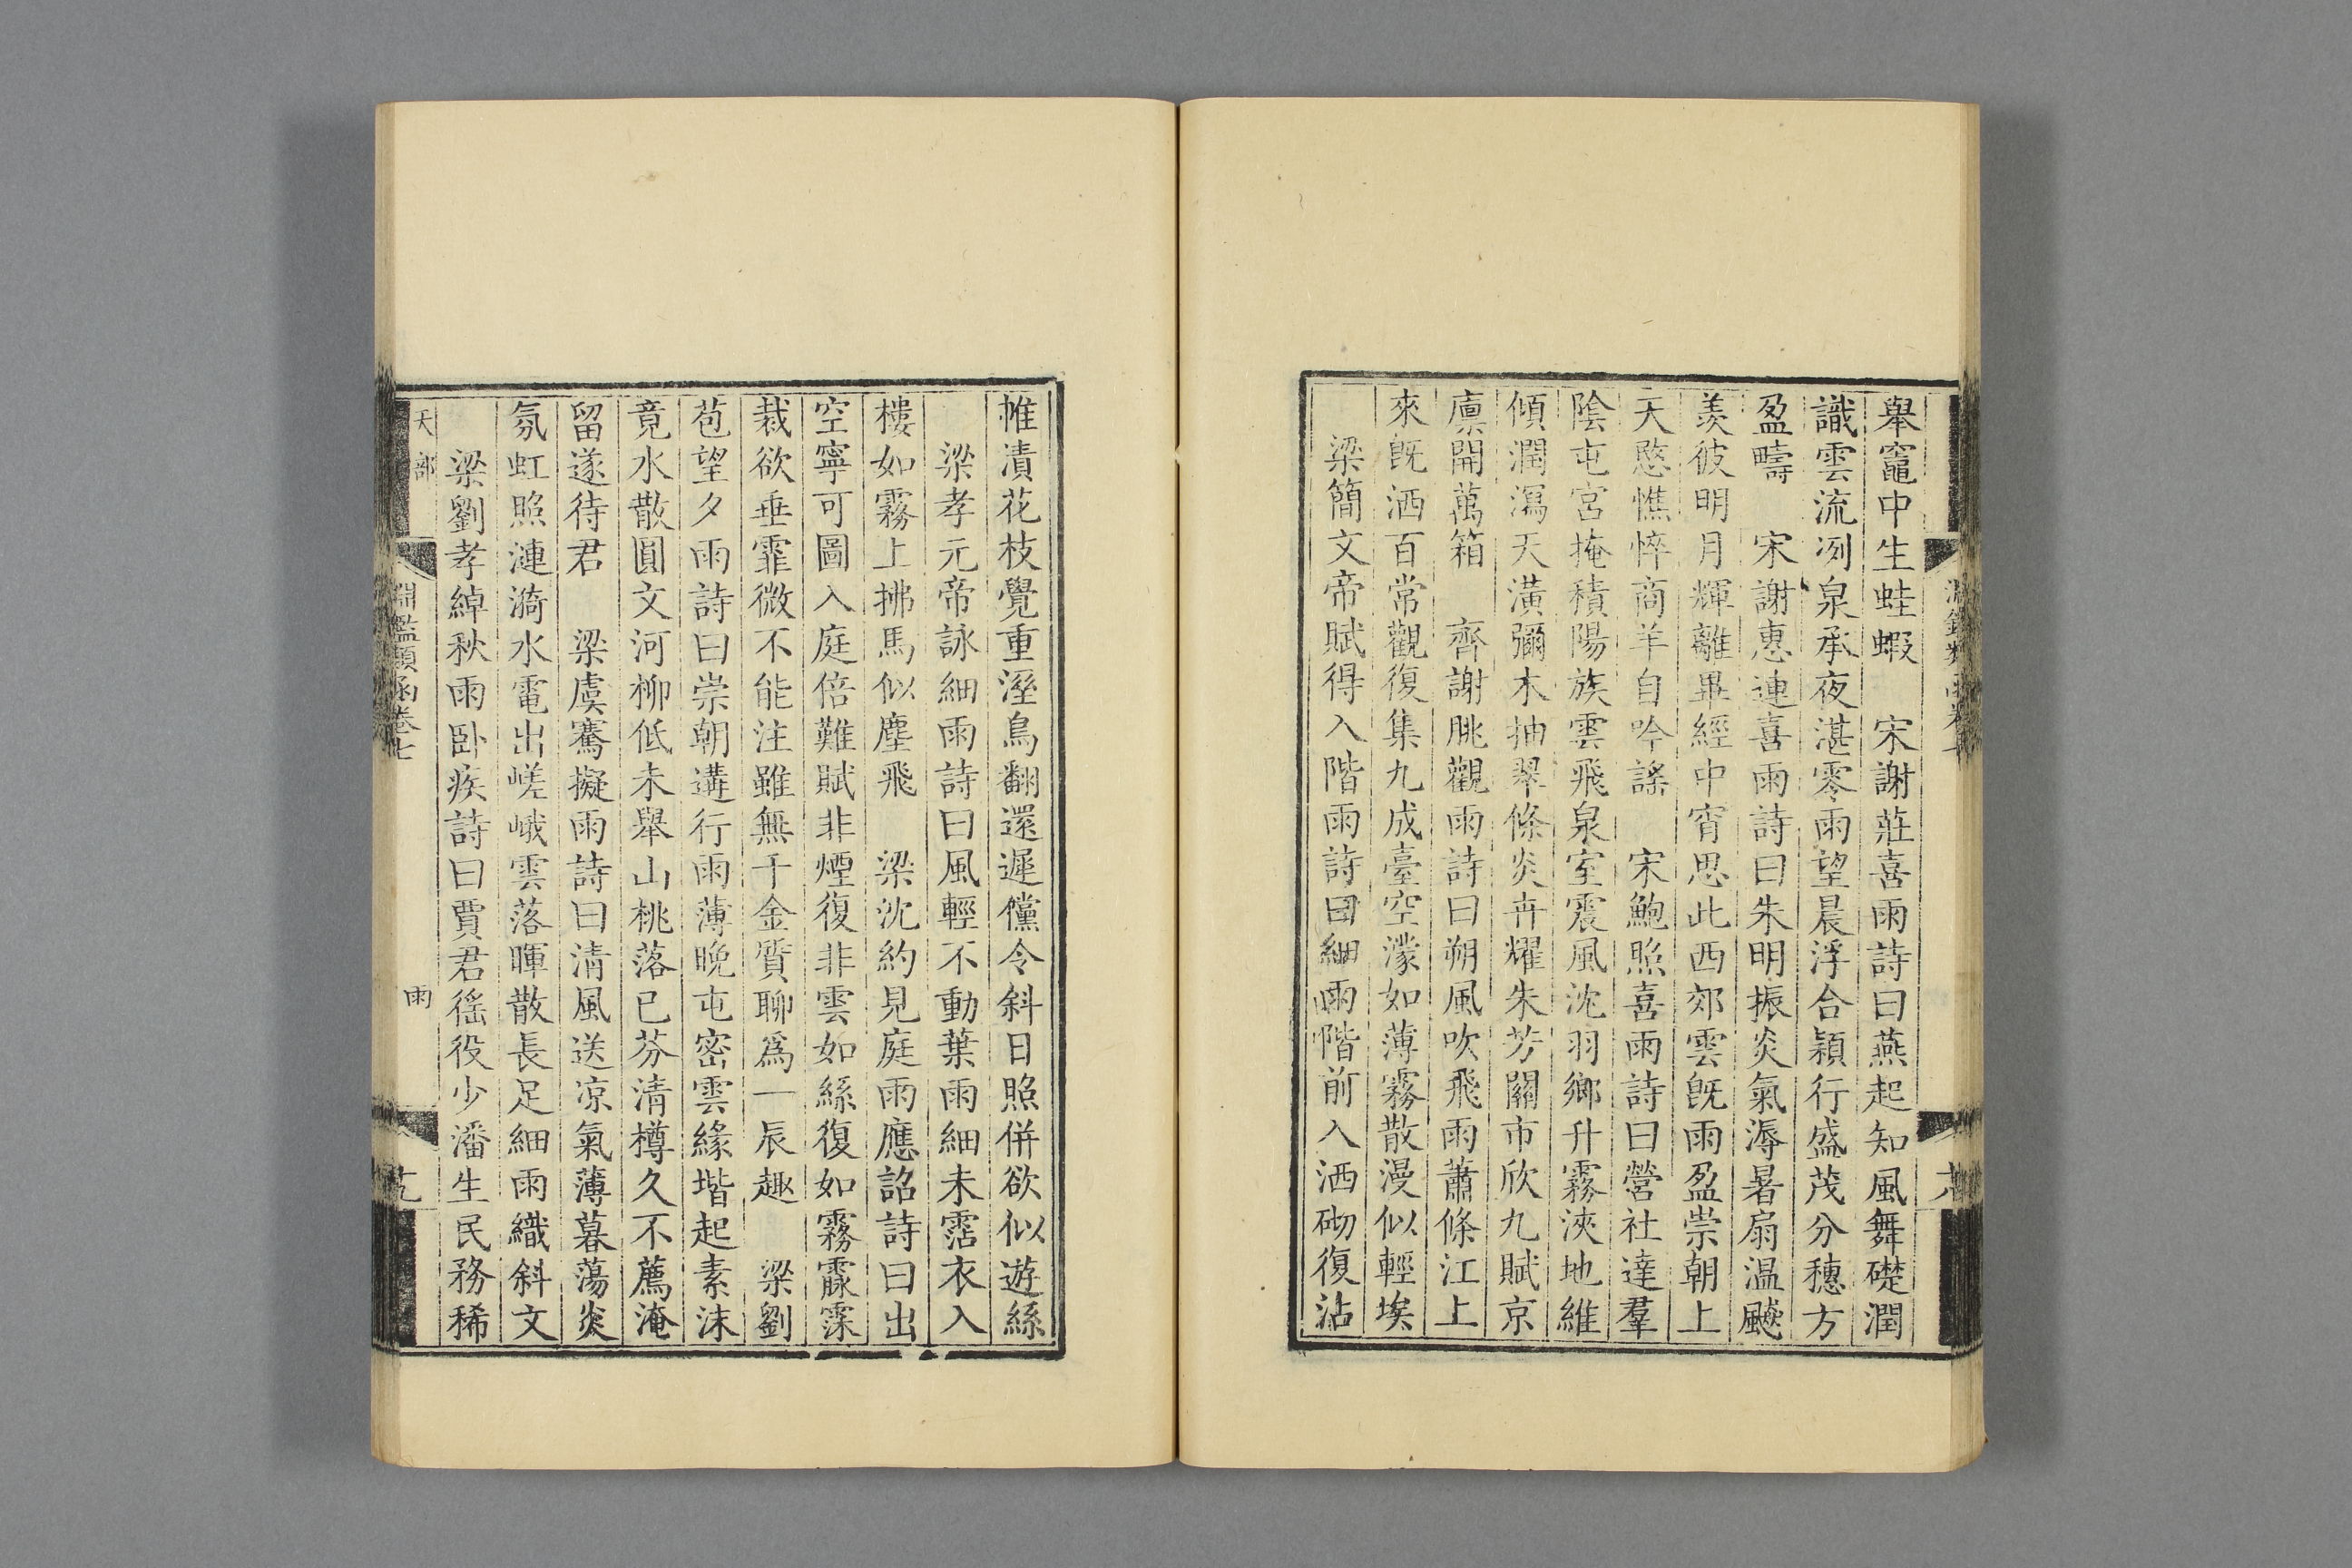 舉竈中生蛙蝦　宋謝莊喜雨詩曰燕起知風舞礎潤
識雲流冽泉承夜湛零雨望晨浮合穎行盛茂分穗方
盈疇　宋謝惠連喜雨詩曰朱明振炎氣溽暑扇温飈
羨彼明月輝離畢經中宵思此西郊雲旣雨盈崇朝上
天愍憔悴商羊自吟謠　宋鮑照喜雨詩曰營社達羣
陰屯宮掩積陽族雲飛泉室震風沈羽鄉升霧浹地維
傾潤瀉天潢彌木抽翠條炎卉耀朱芳關市欣九賦京
廪開萬箱　齊謝朓觀雨詩曰朔風吹飛雨蕭條江上
來旣洒百常觀復集九成臺空濛如薄霧散漫似輕埃
梁簡文帝賦得入階雨詩曰細雨階前入洒砌復沾
帷漬花枝覺重溼鳥翻還遲儻令斜日照併欲似遊絲
梁孝元帝詠細雨詩曰風輕不動葉雨細未霑衣入
樓如霧上拂馬似塵飛　梁沈約見庭雨應詔詩曰出
空寧可圖入庭倍難賦非煙復非雲如絲復如霧霡霂
裁欲垂霏微不能注雖無千金質聊爲一辰趣　梁劉
苞望夕雨詩曰崇朝遘行雨薄晩屯密雲緣堦起素沫
竟水散圓文河柳低未舉山桃落已芬清樽久不薦淹
留遂待君　梁虞騫擬雨詩曰清風送凉氣薄暮蕩炎
氛虹照漣漪水電出嵯峨雲落暉散長足細雨織斜文
梁劉孝綽秋雨卧疾詩曰賈君徭役少潘生民務稀
天部
淵鑑類函卷七
雨